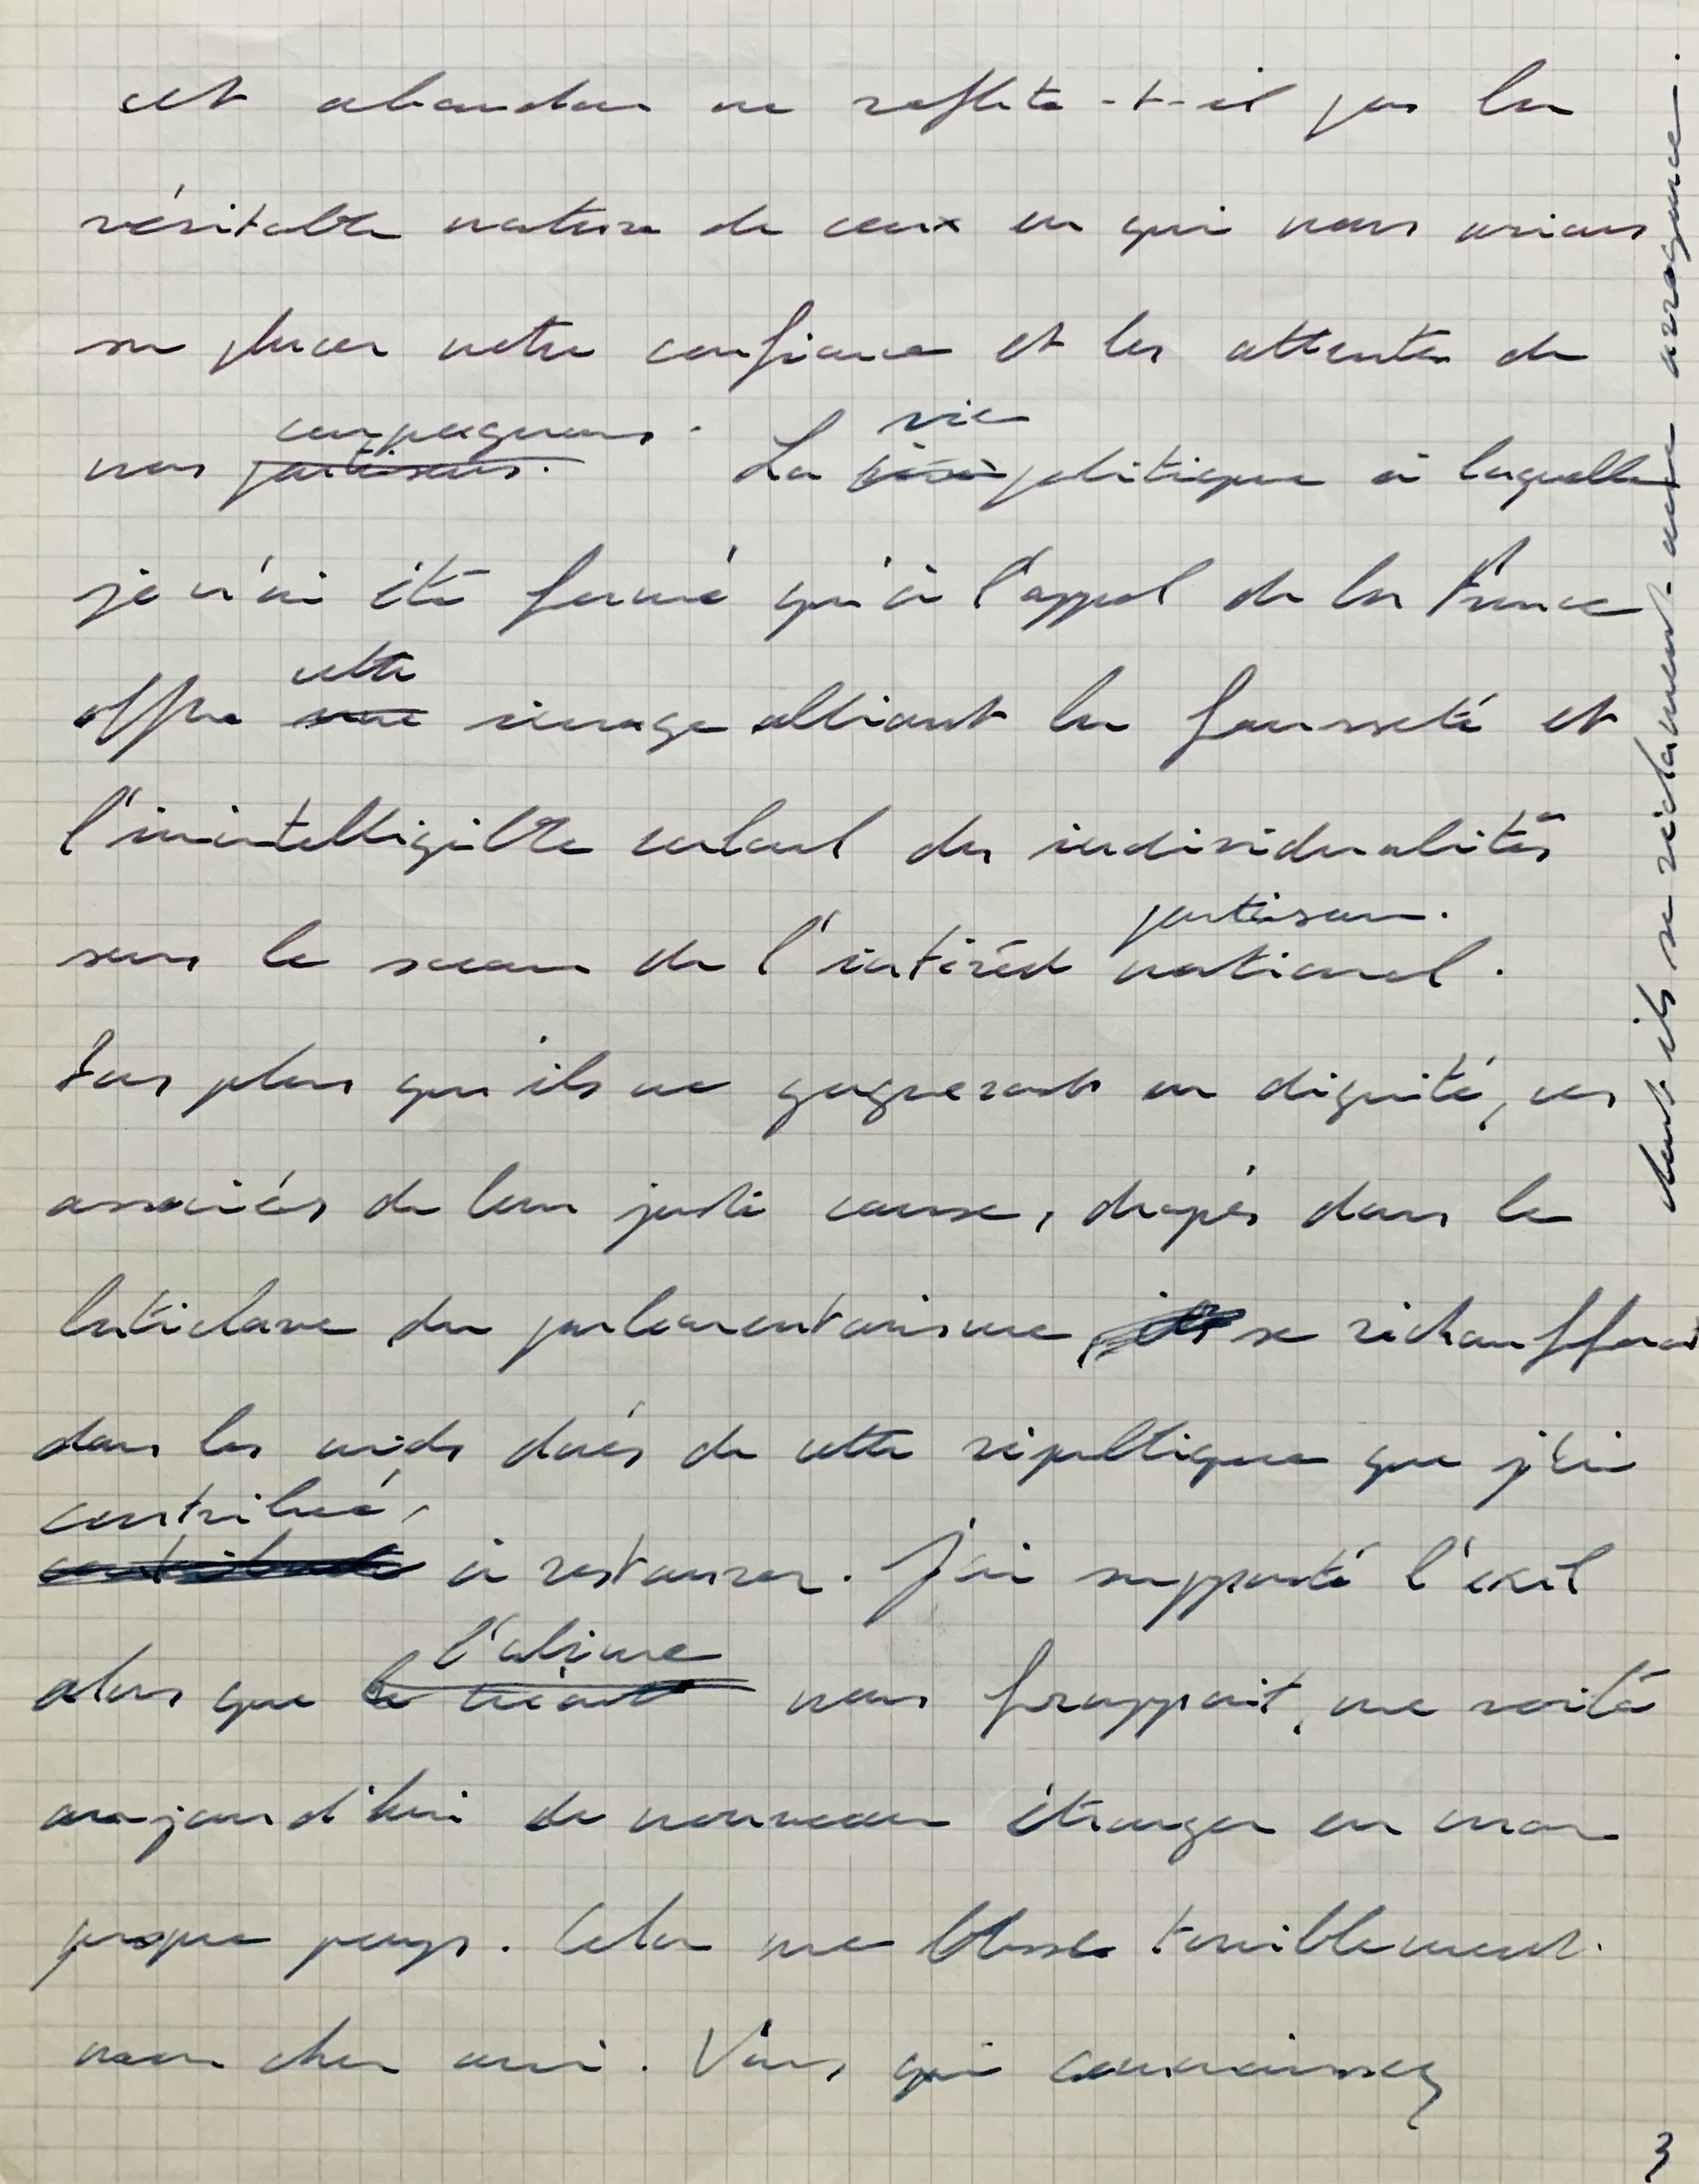 cet abandon ne reflète-t-il pas la
véritable nature de ceux en qui nous avions
su placer notre confiance et les attentes de
compagnons.
nos partisans.
vie
La politique à laquelle
je n'ai été formé qu'à l'appel de la France
cette
offre une image alliant la fausseté et
l'inintelligible calcul des individualités
partisan.
sous le sceau de l'intérêt national.
Pas plus qu'ils ne gagneront en dignité, ces
associés de leur juste cause, drapés dans le
laticlave du parlementarisme, ils se réchauffent
dans les nids dorés de cette république que j'ai
contribué,
à restaurer. J'ai supporté l'exil
l'abime
alors que le néant nous frappait, me voilà
aujourd'hui de nouveau étranger en mon
propre pays. Cela me blesse terriblement.
mon cher ami. Vous qui connaissez
3
dont ils se réclament avec arrogance.